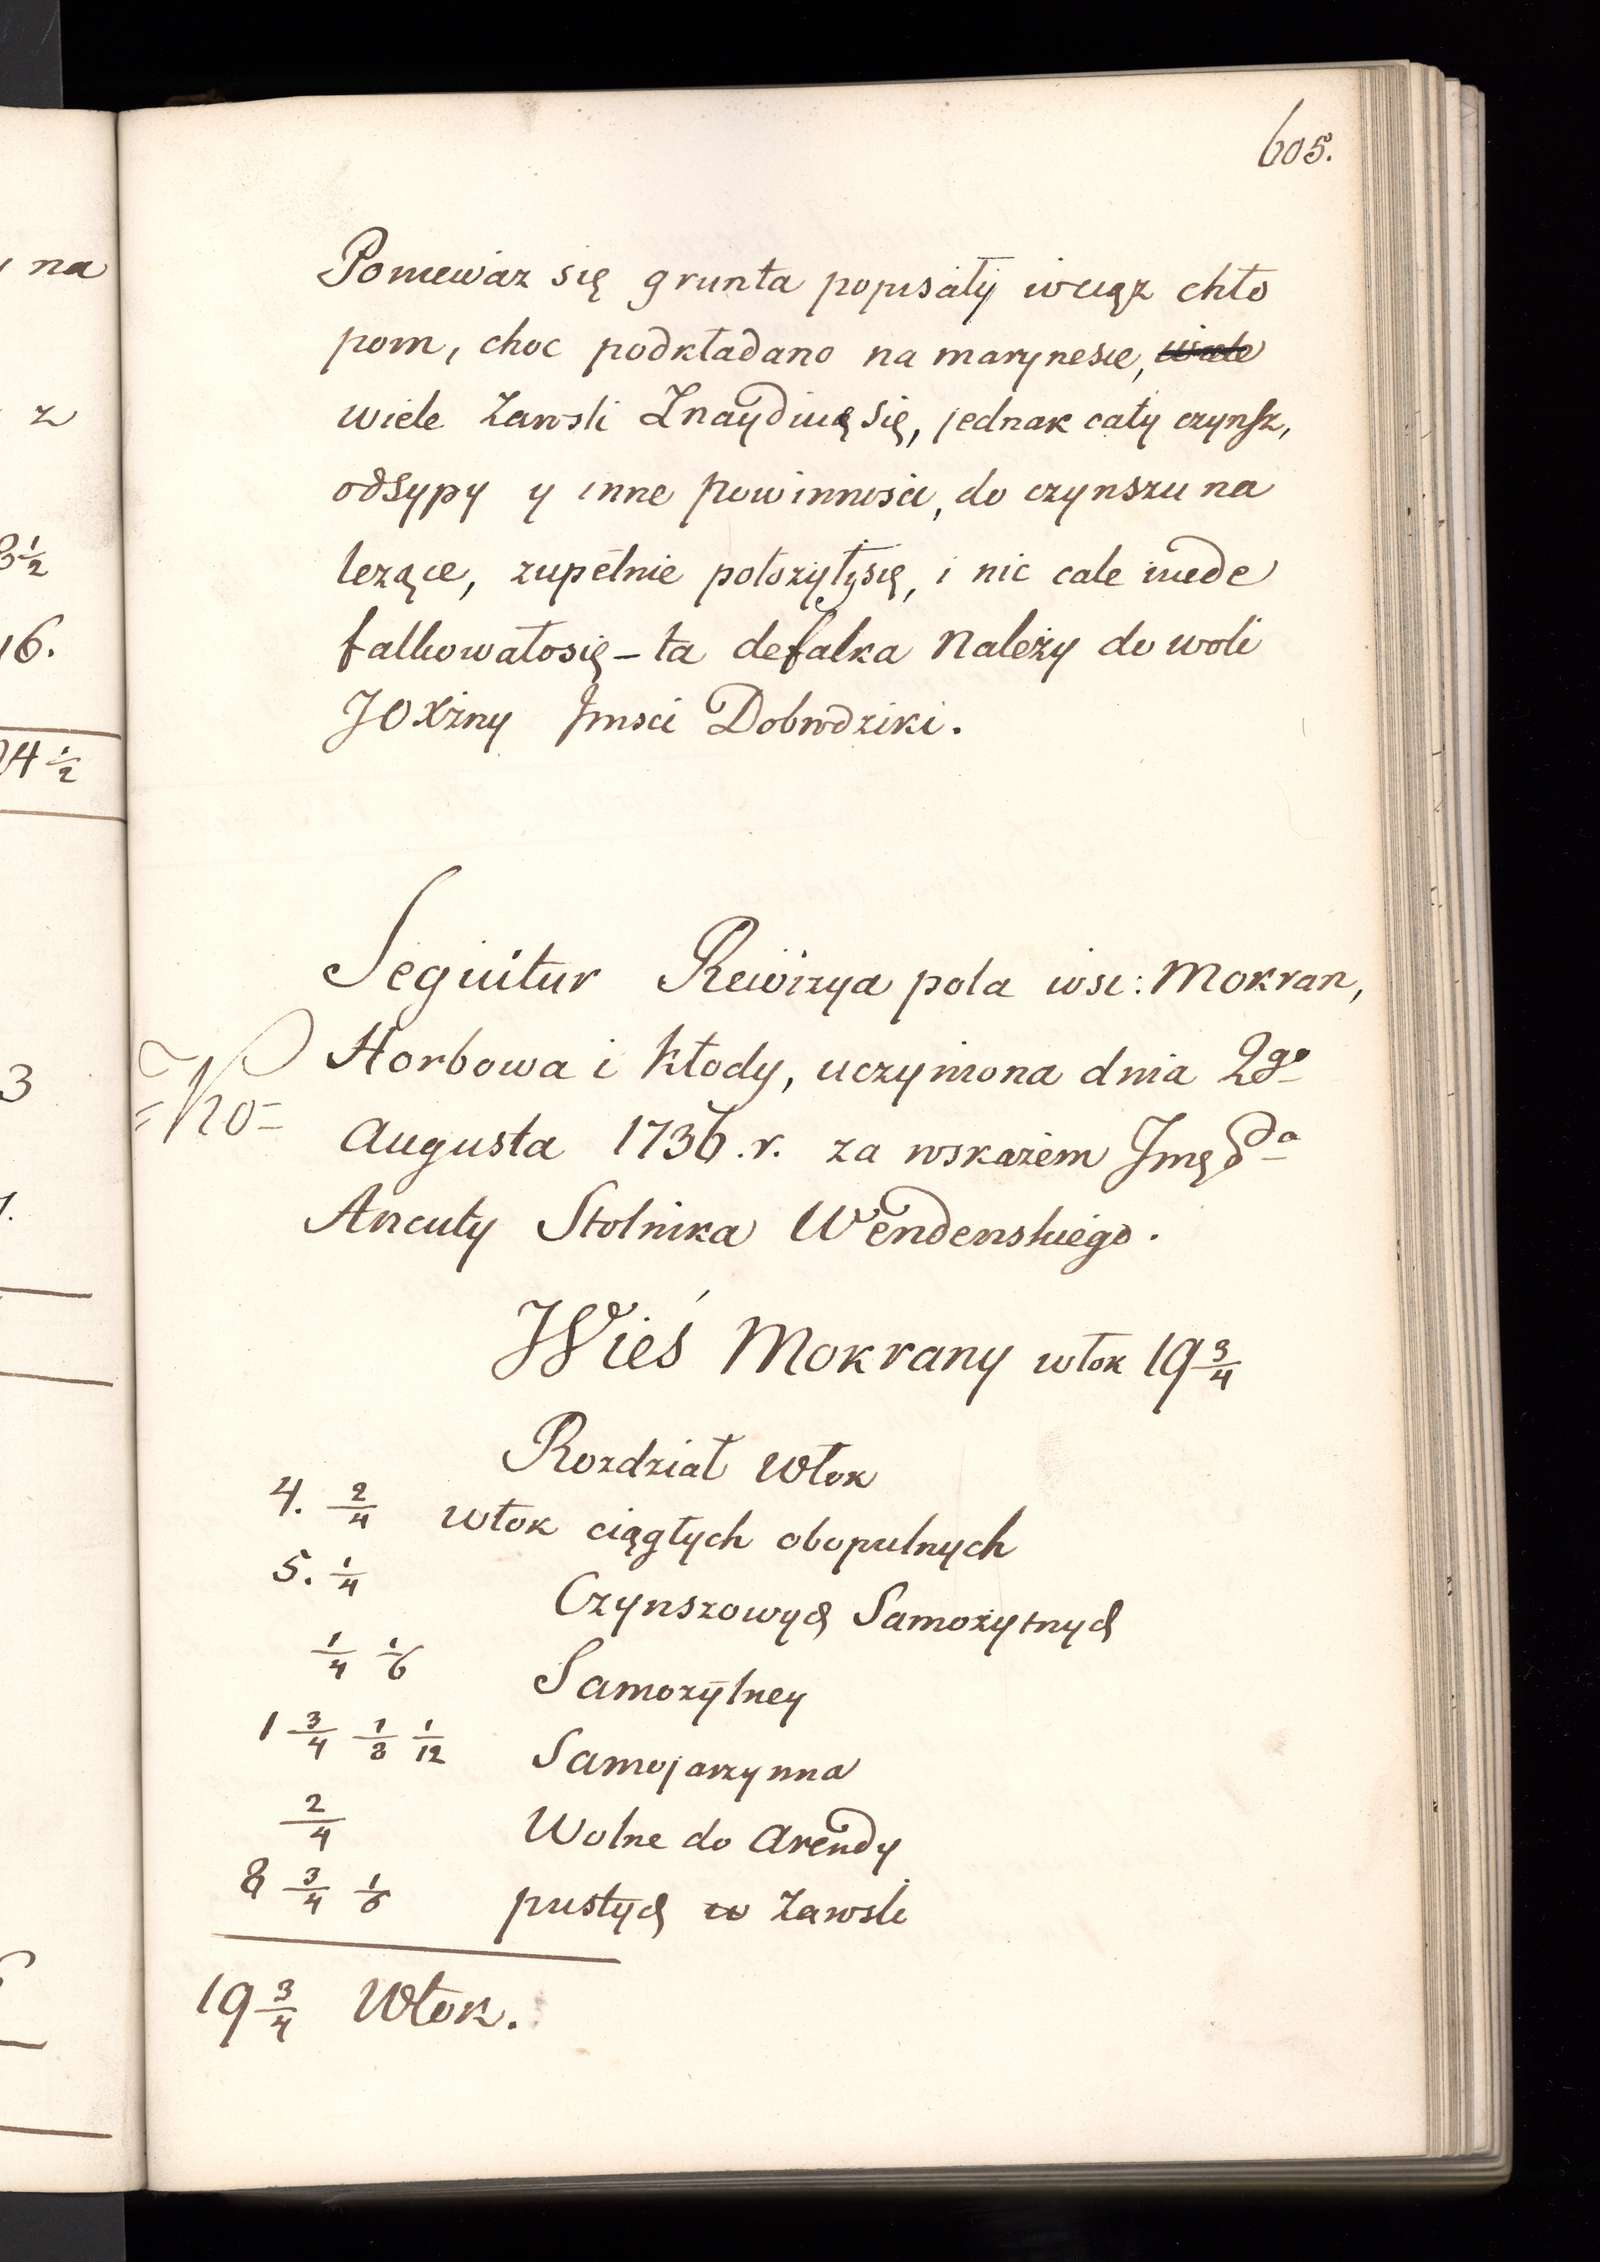 605.
Poniewaz się grunta popisały wciąż chło
pom, choc podkładano na marynesie, wiele
wiele Zawsli Znaydiuę się, jednak cały czynsz,
odsypy y inne powinnosci, do czynszu na
lezące, zupełnie położyły się, i nic cale niede
falkowało się – ta defalka Należy do woli
JOXżny Jmsci Dobrodziki.
Seguitur Rewizya pola wsi: Mokran,
Horbowa i Kłody, uczyniona dnia 2go
Augusta 1736.r. za wskazem Jmę Pda
Ancuty Stolnika Wendenskiego.
Wieś Mokrany włok 19 3/4
Rozdział Włok
4. 2/4 włok ciągłych obopulnych
5. 1/4 Czynszowych Samożytnych
1/4 1/6 Samożytney
1 3/4 1/3 1/12 Samojarzynna
2/4 Wolne do Arendy
8 3/4 1/6 pustych w Zawsli
19 3/4 Włok.
na
z
3 1/2
16.
24 1/2
3